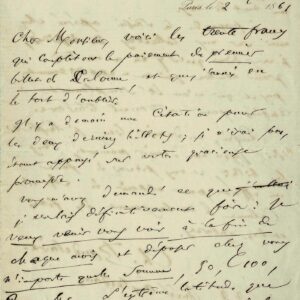 Paris le 2 1861
Cher Monsieur, voici les trente francs
qui complètent le paiement du premier
billet de Calonne, et que j'avais eu
le tort d'oublier.
Il y a demain une citation pour
les deux derniers billets ; je n'avais pas,
étant appuyé sur votre gracieuse
promesse.
Vous m'avez demandé ce que
je voulais définitivement faire : je
veux venir vous voir à la fin de
chaque mois et déposer chez vous
n'importe quelle somme, 50, 100,
l'extrême latitude, que